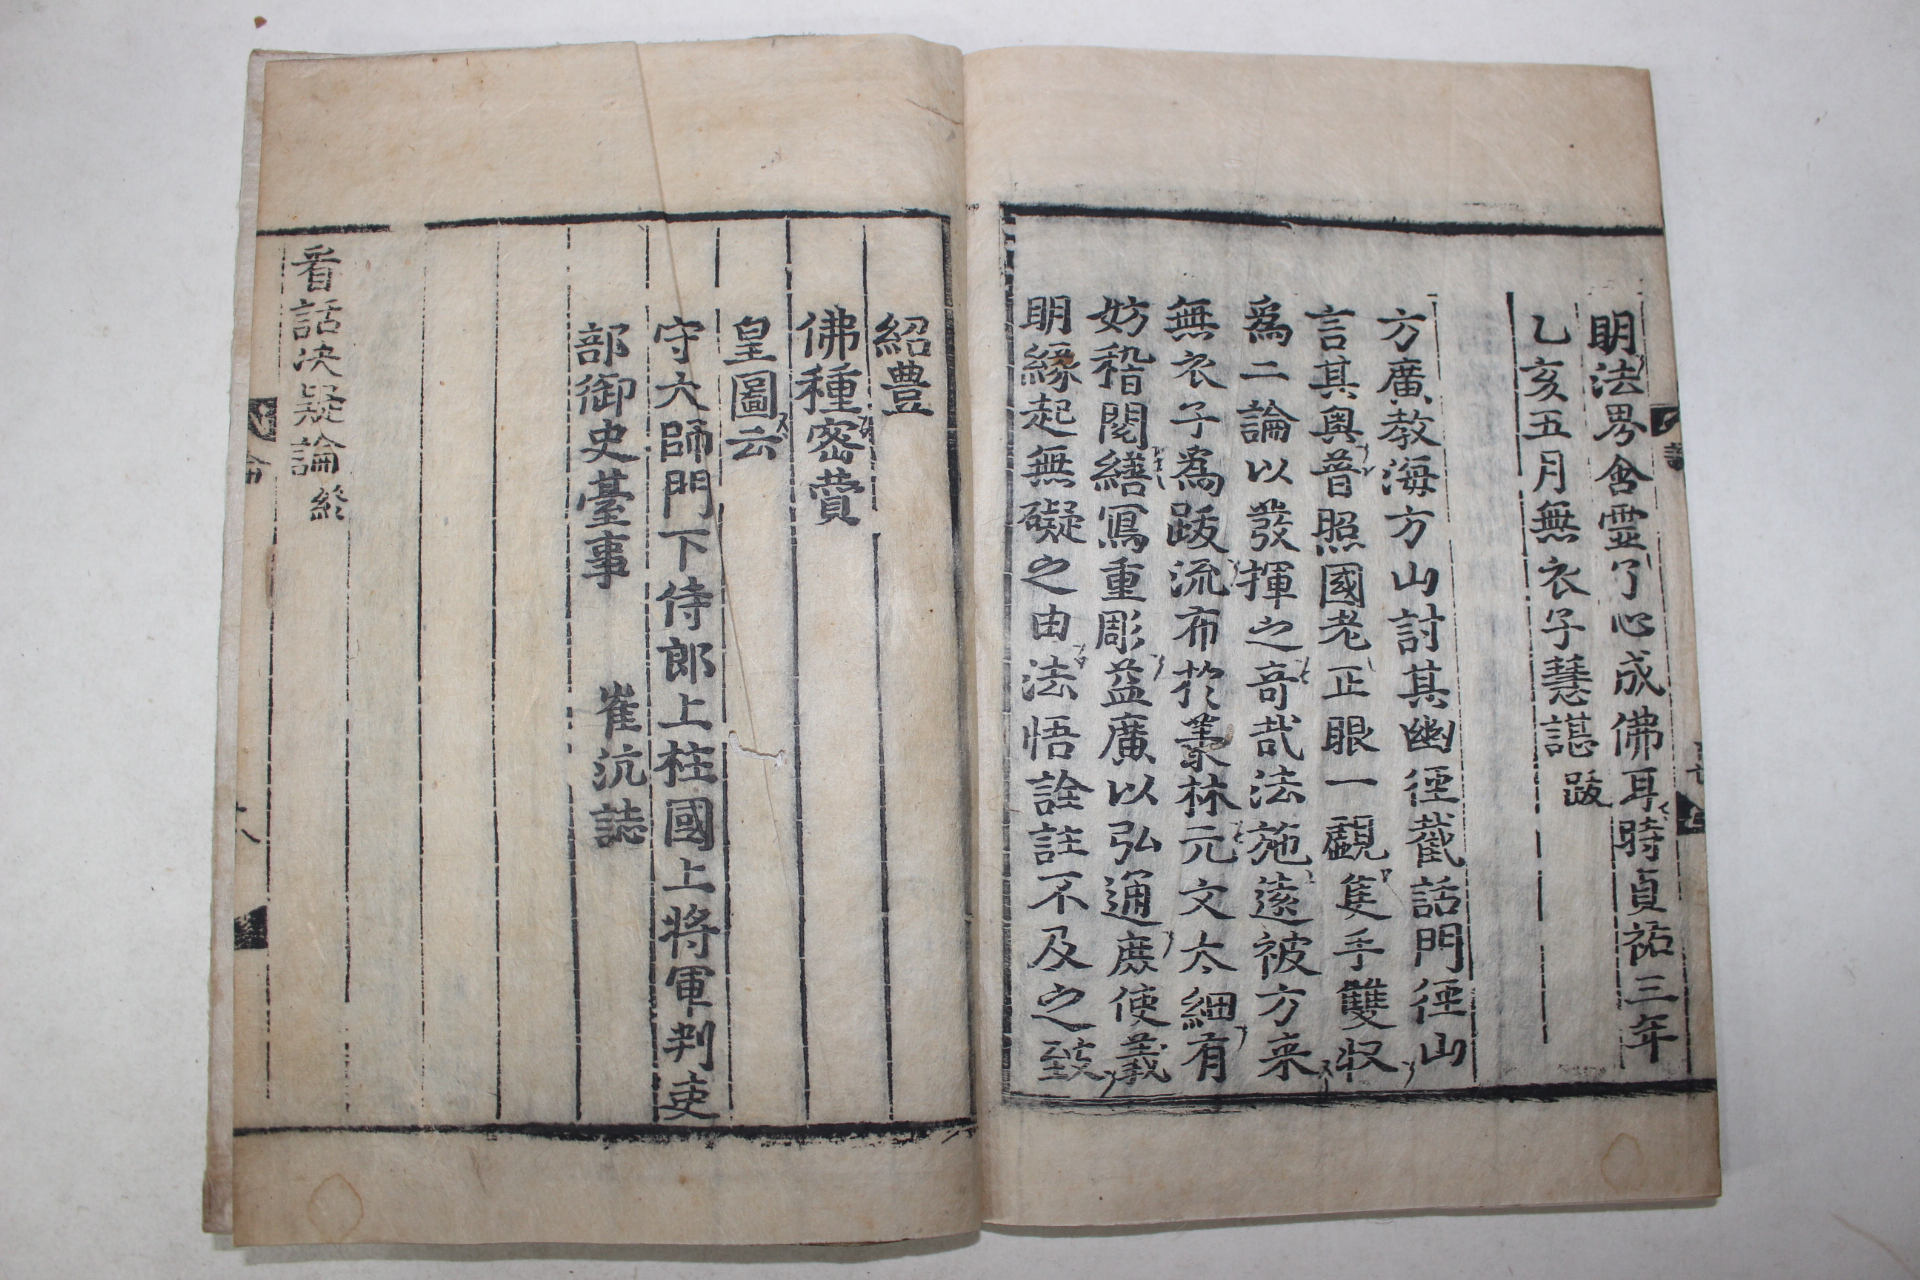 明法界含霊了心成佛耳時貞祐三年
乙亥五月無衣子慧諶跋
方廣教海方山討其幽徑截話門徑山
言其奧普照國老正眼一覷隻手雙收
爲二論以發揮之奇哉法施遠被方來
無衣子爲跋流布於叢林元文太細有
妨稽閱繕寫重彫益廣以弘通庶使義
明緣起無礙之由法悟詮註不及之致
紹豊
佛種密賛
皇圖云
守大師門下侍郎上柱國上將軍判吏
部御史䑓事 崔沆誌
看話决疑論終